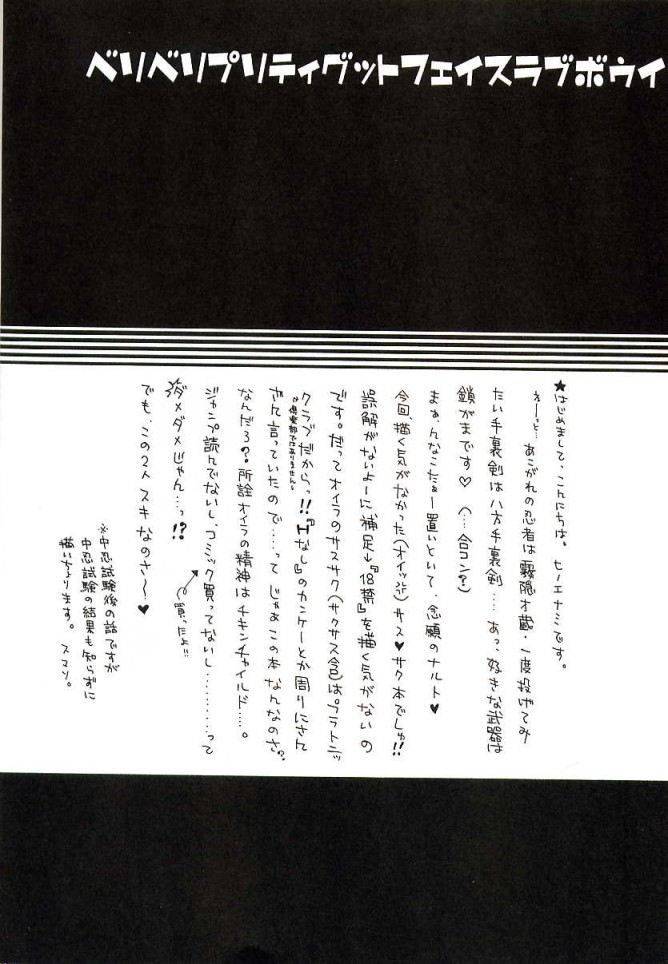 ベリベリプリティグットフェイスラブボウイ
★はじめまして、こんにちは。ヒーエナミです。
えーっと…あこがれの忍者は霧隠才蔵・一度投げてみ
たい手裏剣は八方手裏剣…あっ、好きな武器は
鎖がまです♡(…合コン?)
まぁ、んなこたぁー置いといて、念願のナルト♥
今回、描く気がなかった(オイッ)サス♥サク本でしゅ!!
誤解がないよーに補足→『18禁』を描く気がないの
です。だってオイラのサスサク(サクサス含)はプラトニッ
クラブだからっ!!『Hなし』のカンケーとか周りにさん
※倶楽部ではありません。
ざん言っていたので…って じゃぁこの本なんなのさ?
なんだろ?所詮オイラの精神はチキンチャイルド……。
ジャンプ読んでないし、コミック買ってないし………って
ダメダメじゃん…っ!?
買ったよ!!
でも、この2人スキなのさ〜♥
※中忍試験後の話ですが
中忍試験の結果も知らずに
描いちょります。スマソ。